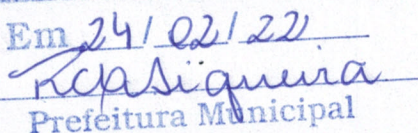 Em 24/02/22
RCASiqueira
Prefeitura Municipal